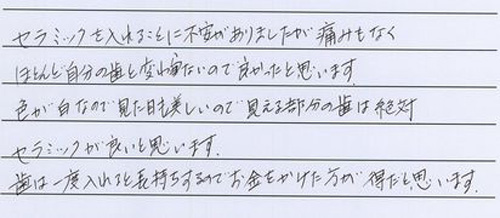 セラミックを入れることに不安がありましたが痛みもなく
ほとんど自分の歯と変わらないので良かったと思います。
色が白なので見た目も美しいので見える部分の歯は絶対
セラミックが良いと思います。
歯は一度入れると長持ちするのでお金をかけた方が得だと思います。